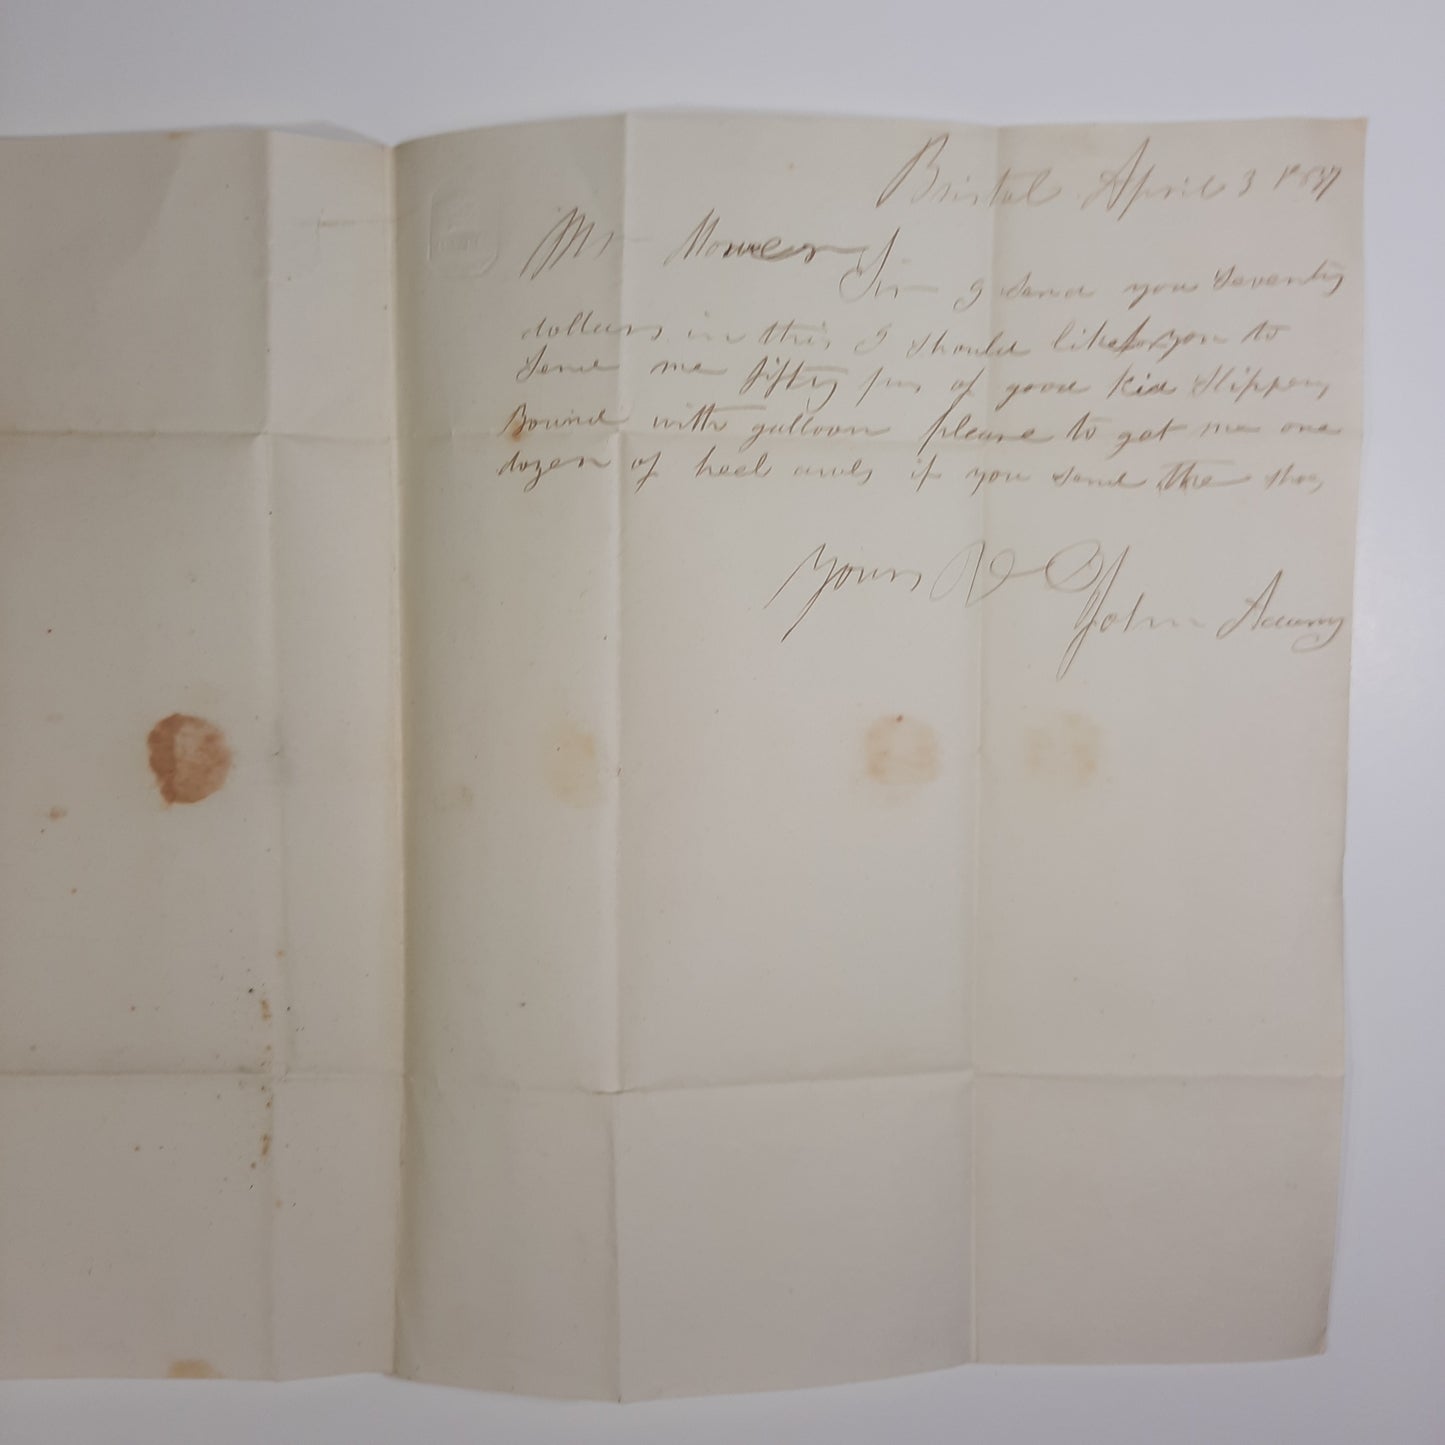 Bristol April 3 1837
Mr
Sir I send you seventy
dollars in this I should like for you to
send me fifty prs of good kid slippers
Bound with galloon please to get me one
dozen of heel awls if you send the shoes
Yours
John